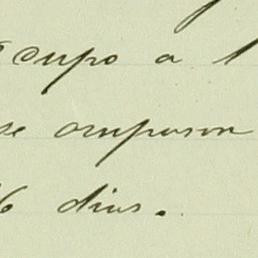 cupo a 1
se ocuparon
6 dias.